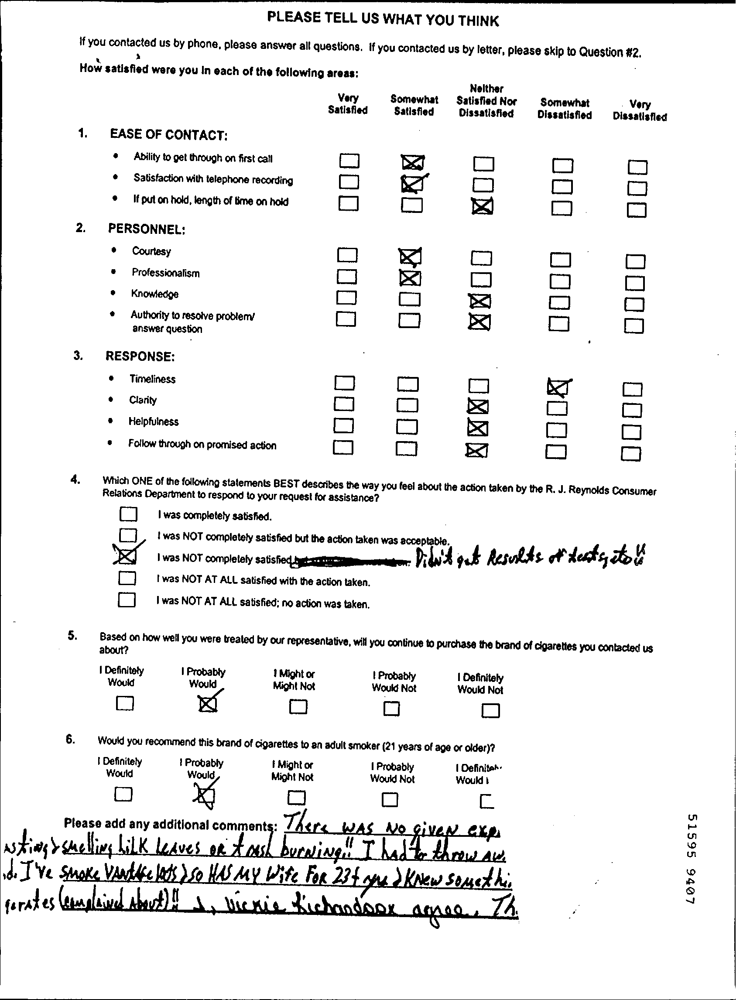 PLEASE TELL US WHAT YOU THINK
If you contacted us by phone, please answer all questions. If you contacted us by letter, please skip to Question #2.
How satisfied were you in each of the following areas:
Very Satisfied Somewhat Satisfied Neither Satisfied Nor Dissatisfied Somewhat Dissatisfied Very Dissatisfied
1. EASE OF CONTACT:
• Ability to get through on first call
• Satisfaction with telephone recording
• If put on hold, length of time on hold
2. PERSONNEL:
• Courtesy
• Professionalism
• Knowledge
• Authority to resolve problem/
answer question
3. RESPONSE:
• Timeliness
• Clarity
• Helpfulness
• Follow through on promised action
4. Which ONE of the following statements BEST describes the way you feel about the action taken by the R. J. Reynolds Consumer
Relations Department to respond to your request for assistance?
I was completely satisfied.
I was NOT completely satisfied but the action taken was acceptable.
I was NOT completely satisfied Didn't get Results of test
I was NOT AT ALL satisfied with the action taken.
I was NOT AT ALL satisfied; no action was taken.
5. Based on how well you were treated by our representative, will you continue to purchase the brand of cigarettes you contacted us
about?
I Definitely Would I Probably Would I Might or Might Not I Probably Would Not I Definitely Would Not
6. Would you recommend this brand of cigarettes to an adult smoker (21 years of age or older)?
I Definitely Would I Probably Would I Might or Might Not I Probably Would Not I Definitely Would
Please add any additional comments: There was no given exp
smelling like leaves or trash burning!! I had to throw aw
d. I've smoke Vantage so has my wife for 23+ yrs & know somethi
garates (complained about)!! I, Vickie Richardson agree. Th
51595 9407